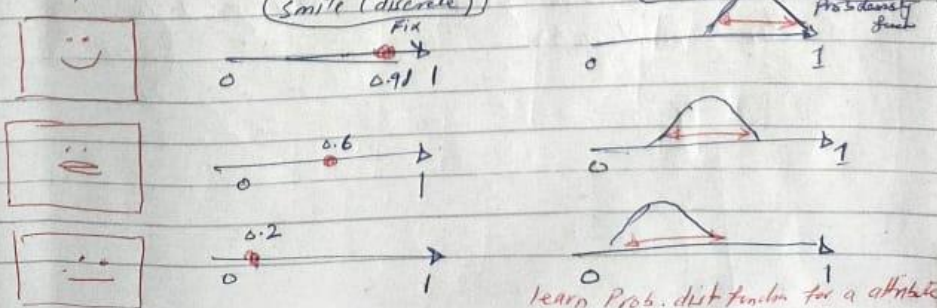 Smile (discrete)
Fix
Prob density
func
0 0.91 1
0 1
0.6
0 1
0 1
0.2
0 1
0 1
learn Prob. dist function for a attribute